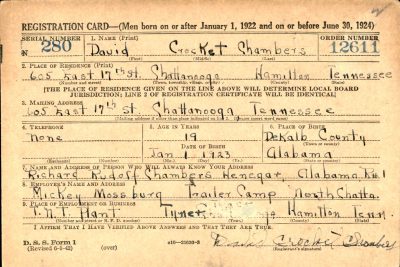 REGISTRATION CARD—(Men born on or after January 1, 1922 and on or before June 30, 1924)
SERIAL NUMBER 1. NAME (Print) ORDER NUMBER
N 280 David Crocket Chambers 12611
(First) (Middle) (Last)
2. PLACE OF RESIDENCE (Print)
605 East 17th St. Chattanooga Hamilton Tennessee
(Number and street) (Town, township, village, or city) (County) (State)
[THE PLACE OF RESIDENCE GIVEN ON THE LINE ABOVE WILL DETERMINE LOCAL BOARD
JURISDICTION; LINE 2 OF REGISTRATION CERTIFICATE WILL BE IDENTICAL]
3. MAILING ADDRESS
605 East 17th St. Chattanooga Tennessee
[Mailing address if other than place indicated on line 2. If same insert word same]
4. TELEPHONE 5. AGE IN YEARS 6. PLACE OF BIRTH
None 19 DeKalb County
DATE OF BIRTH (Town or county)
Jan 1 1923 Alabama
(Exchange) (Number) (Mo.) (Day) (Yr.) (State or country)
7. NAME AND ADDRESS OF PERSON WHO WILL ALWAYS KNOW YOUR ADDRESS
Richard Rudolf Chambers Henegar, Alabama,
8. EMPLOYER'S NAME AND ADDRESS
Mickey Mossburg Trailer Camp North Chatta.
9. PLACE OF EMPLOYMENT OR BUSINESS
T.N.T. Plant Tyner Hamilton Tenn.
(Number and street or R. F. D. number) (Town) (County) (State)
I AFFIRM THAT I HAVE VERIFIED ABOVE ANSWERS AND THAT THEY ARE TRUE.
D. S. S. Form 1
(Revised 6-9-42) (over) David Crocket Chambers
(Registrant's signature)